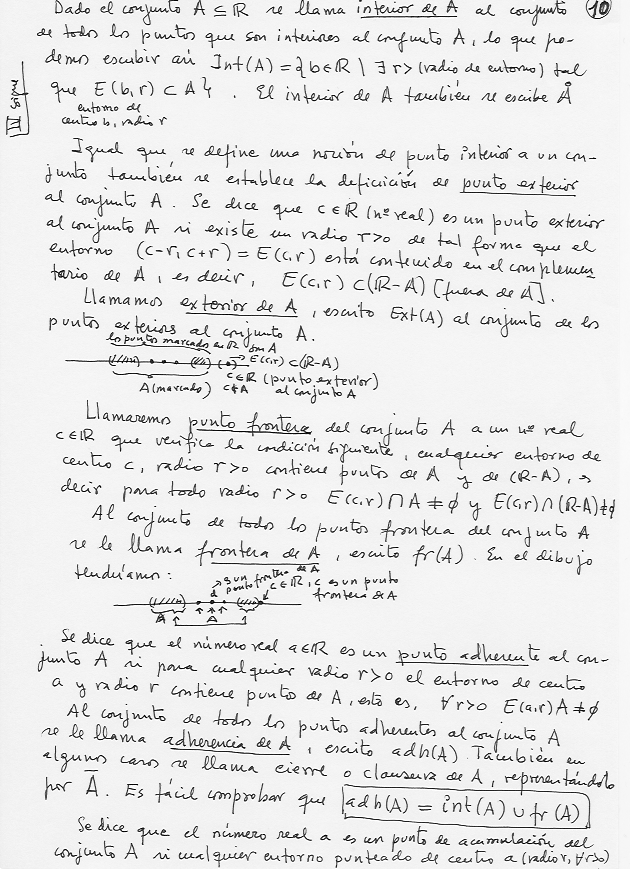 Dado el conjunto A ⊆ ℝ se llama interior de A al conjunto (10)
de todos los puntos que son interiores al conjunto A, lo que po-
demos escribir así Int(A) = {b∈ℝ \ ∃ r> (radio de entorno) tal
que E(b,r) ⊂ A}. El interior de A también se escribe Å
entorno de
centro b, radio r
Igual que se define una noción de punto interior a un con-
junto también se establece la deficición de punto exterior
al conjunto A. Se dice que c∈ℝ (nº real) es un punto exterior
al conjunto A si existe un radio r>0 de tal forma que el
entorno (c-r, c+r) = E(c,r) está contenido en el complemen
tario de A, es decir, E(c,r) ⊂ (ℝ-A) [fuera de A].
Llamamos exterior de A, escrito Ext(A) al conjunto de los
puntos exteriores al conjunto A.
los puntos marcados en ℝ son A
E(c,r) ⊂ (ℝ-A)
A (marcado) c∈ℝ (punto exterior)
c∉A al conjunto A
Llamaremos punto frontera del conjunto A a un nº real
c∈ℝ que verifica la condición siguiente, cualquier entorno de
centro c, radio r>0 contiene puntos de A y de (ℝ-A), es
decir para todo radio r>0 E(c,r)∩A≠∅ y E(c,r)∩(ℝ-A)≠∅
Al conjunto de todos los puntos frontera del conjunto A
se le llama frontera de A, escrito fr(A). En el dibujo
tendríamos:
es un punto frontera de A
d c∈ℝ, c es un punto
frontera de A
A A
Se dice que el número real a∈ℝ es un punto adherente al con-
junto A si para cualquier radio r>0 el entorno de centro
a y radio r contiene puntos de A, esto es, ∀r>0 E(a,r)A≠∅
Al conjunto de todos los puntos adherentes al conjunto A
se le llama adherencia de A, escrito adh(A). También en
algunos casos se llama cierre o clausura de A, representándolo
por Ā. Es fácil comprobar que adh(A) = int(A) ∪ fr(A)
Se dice que el número real a es un punto de acumulación del
conjunto A si cualquier entorno punteado de centro a (radio r, ∀r>0)